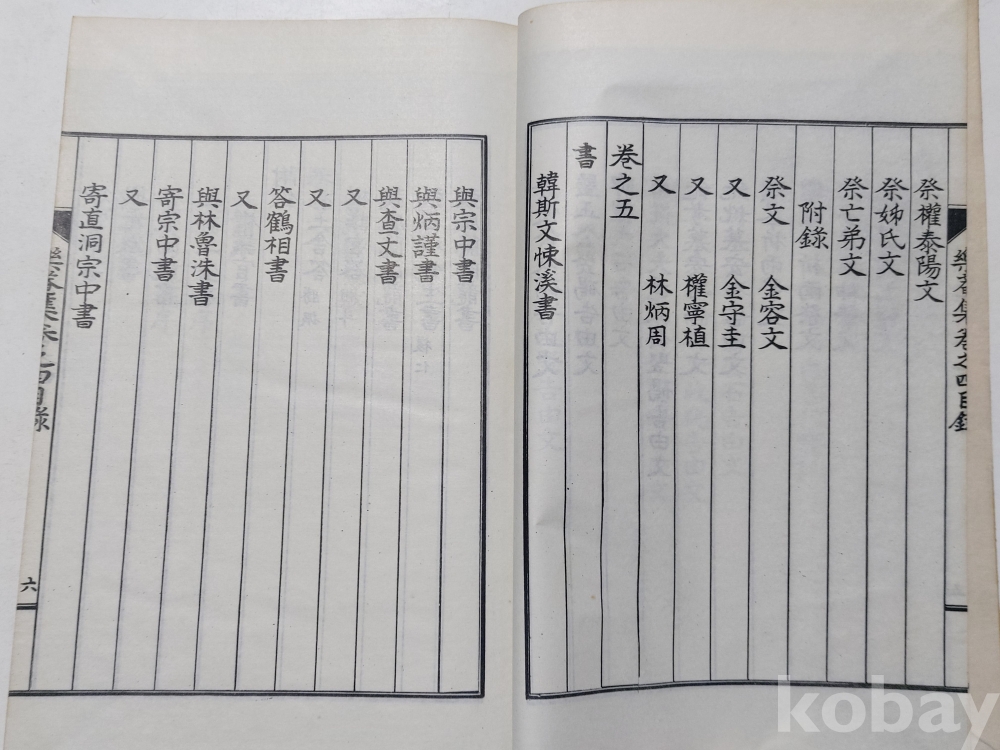 祭權泰陽文
祭姊氏文
祭亡弟文
附錄
祭文 金容文
又 金守圭
又 權寧植
又 林炳周
卷之五
書
韓斯文悚溪書
集卷之四目錄
與宗中書
與炳謹書
與査丈書
又
又
答鶴相書
又
與林魯洙書
寄宗中書
又
寄直洞宗中書
六
kobay